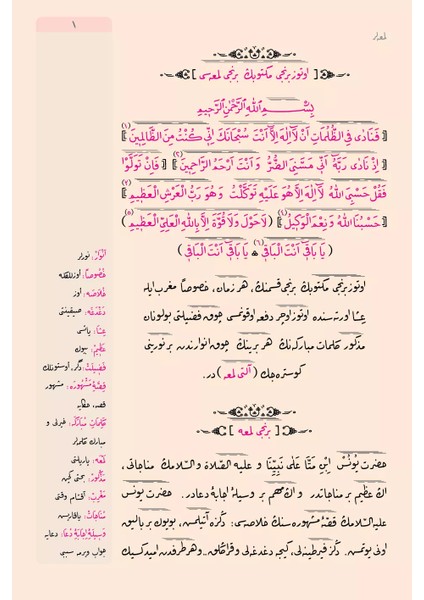 لمعه‌لر
١
[ اوتوز برنجى مكتوبڭ برنجى لمعه‌سى ]
بِسْمِ اللّٰهِ الرَّحْمٰنِ الرَّحِيمِ
﴿ فَنَادٰى فِى الظُّلُمَاتِ اَنْ لَٓا اِلٰهَ اِلَّٓا اَنْتَ سُبْحَانَكَ اِنّٖى كُنْتُ مِنَ الظَّالِمٖينَ ﴾ (١)
﴿ اِذْ نَادٰى رَبَّهُٓ اَنّٖى مَسَّنِىَ الضُّرُّ وَ اَنْتَ اَرْحَمُ الرَّاحِمٖينَ ﴾ (٢) ﴿ فَاِنْ تَوَلَّوْا
فَقُلْ حَسْبِىَ اللّٰهُ لَٓا اِلٰهَ اِلَّا هُوَ عَلَيْهِ تَوَكَّلْتُ وَ هُوَ رَبُّ الْعَرْشِ الْعَظٖيمِ ﴾ (٣)
﴿ حَسْبُنَا اللّٰهُ وَ نِعْمَ الْوَكٖيلُ ﴾ (٤) ( لَا حَوْلَ وَ لَا قُوَّةَ اِلَّا بِاللّٰهِ الْعَلِىِّ الْعَظٖيمِ ) (٥)
( يَا بَاقٖٓى اَنْتَ الْبَاقٖى ۞ يَا بَاقٖٓى اَنْتَ الْبَاقٖى ) (٦)
اوتوز برنجى مكتوبڭ برنجى قسمنڭ، هر زمان، خصوصًا مغرب ايله
عشا اورته‌سنده اوتوز اوچر دفعه اوقونمسى چوق فضيلتلى بولونان
مذكور كلمات مباركه‌نڭ هر برينڭ چوق انوارندن بر نورينى
كوستره‌جك ( آلتى لمعه ) در.
[ برنجى لمعه ]
حضرت يُونُسْ اِبْنِ مَتّٰى عَلٰى نَبِيِّنَا وَ عليه الصّلاة والسّلامڭ مناجاتى،
اڭ عظيم بر مناجاتدر و اڭ مهم بر وسيلهٔ اجابهٔ دعادر. حضرت يونس
عليه السّلامڭ قصّهٔ مشهوره‌سنڭ خلاصه‌سى: دڭزه آتيلمش، بويوك بر باليق
اونى يوتمش. دڭز فيرطينه‌لى، كيجه دغدغه‌لى و قراڭلق، و هر طرفدن اميد كسيك
اَنْوَارْ: نورلر
خُصُوصًا: اوزللكله
خُلَاصَه: اوز
دَغْدَغَه: صيقينتى
عِشَا: ياتسى
عَظٖيمْ: بيوك
قِصَّهٔ مَشْهُورَه: مشهور
قصه، حكايه
مبارك كلمه‌لر
لَمْعَه: پاريلتى
مَذْكُورْ: بحثى كچن
مَغْرِبْ: آقشام وقتى
مُنَاجَاتْ: ياقاريش
وَسٖيلَهٔ اِجَابَهٔ دُعَا: دعايه
جواب ويرمه سببى